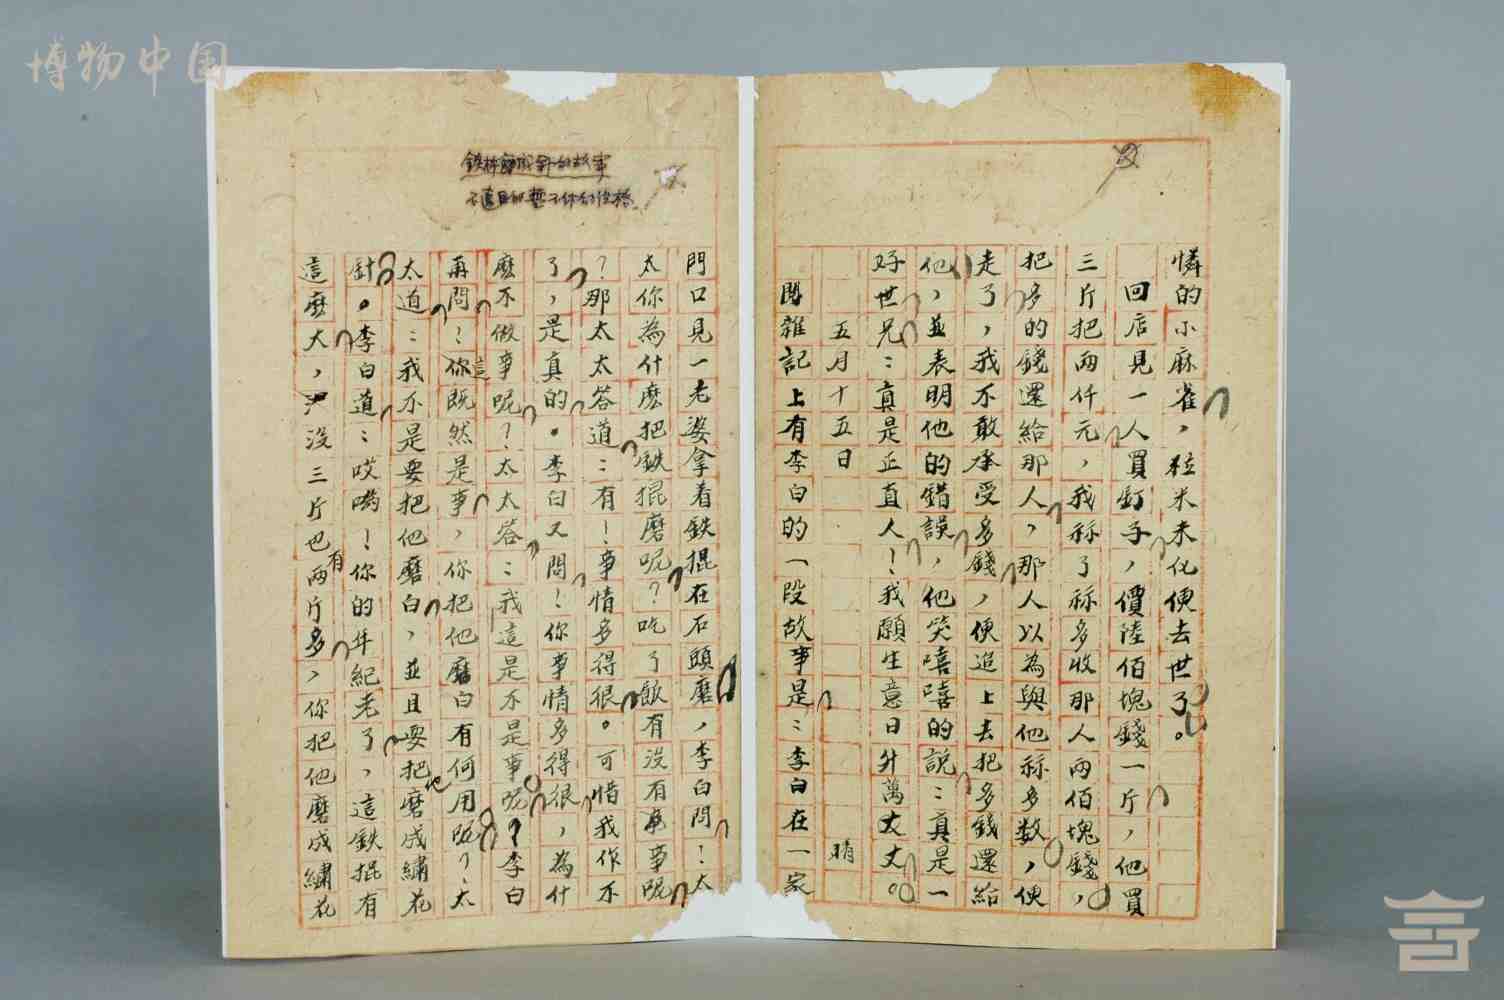 博物中国
憐的小麻雀，粒米未化便去世了。
回店見一人買釘子，價陸佰塊錢一斤，他買
三斤把两仟元，我称了称多收那人两佰塊錢，
把多的錢還給那人，那人以為與他称多数，便
走了，我不敢承受多錢，便追上去把多錢還給
他，並表明他的錯誤，他笑嘻嘻的說：真是一
好世兄：真是正直人！我願生意日升萬丈丈。
五月十五日 晴
閱雜記上有李白的一段故事是：李白在一家
鉄杵磨成針的故事
門口見一老婆拿着鉄掍在石頭磨，李白問！太
太你為什麽把鉄掍磨呢？吃了飯有沒有事呢
？那太太答道：有！事情多得很。可惜我作不
了，是真的。李白又問！你事情多得很，為什
麽不做事呢？太太答：我這是不是事呢？李白
再問！你這既然是事，你把他磨白有何用呢？太
太道：我不是要把他磨白，並且要把他磨成繡花
針。李白道：哎喲！你的年紀老了，這鉄掍有
這麽大，沒三斤也有两斤多，你把他磨成繡花